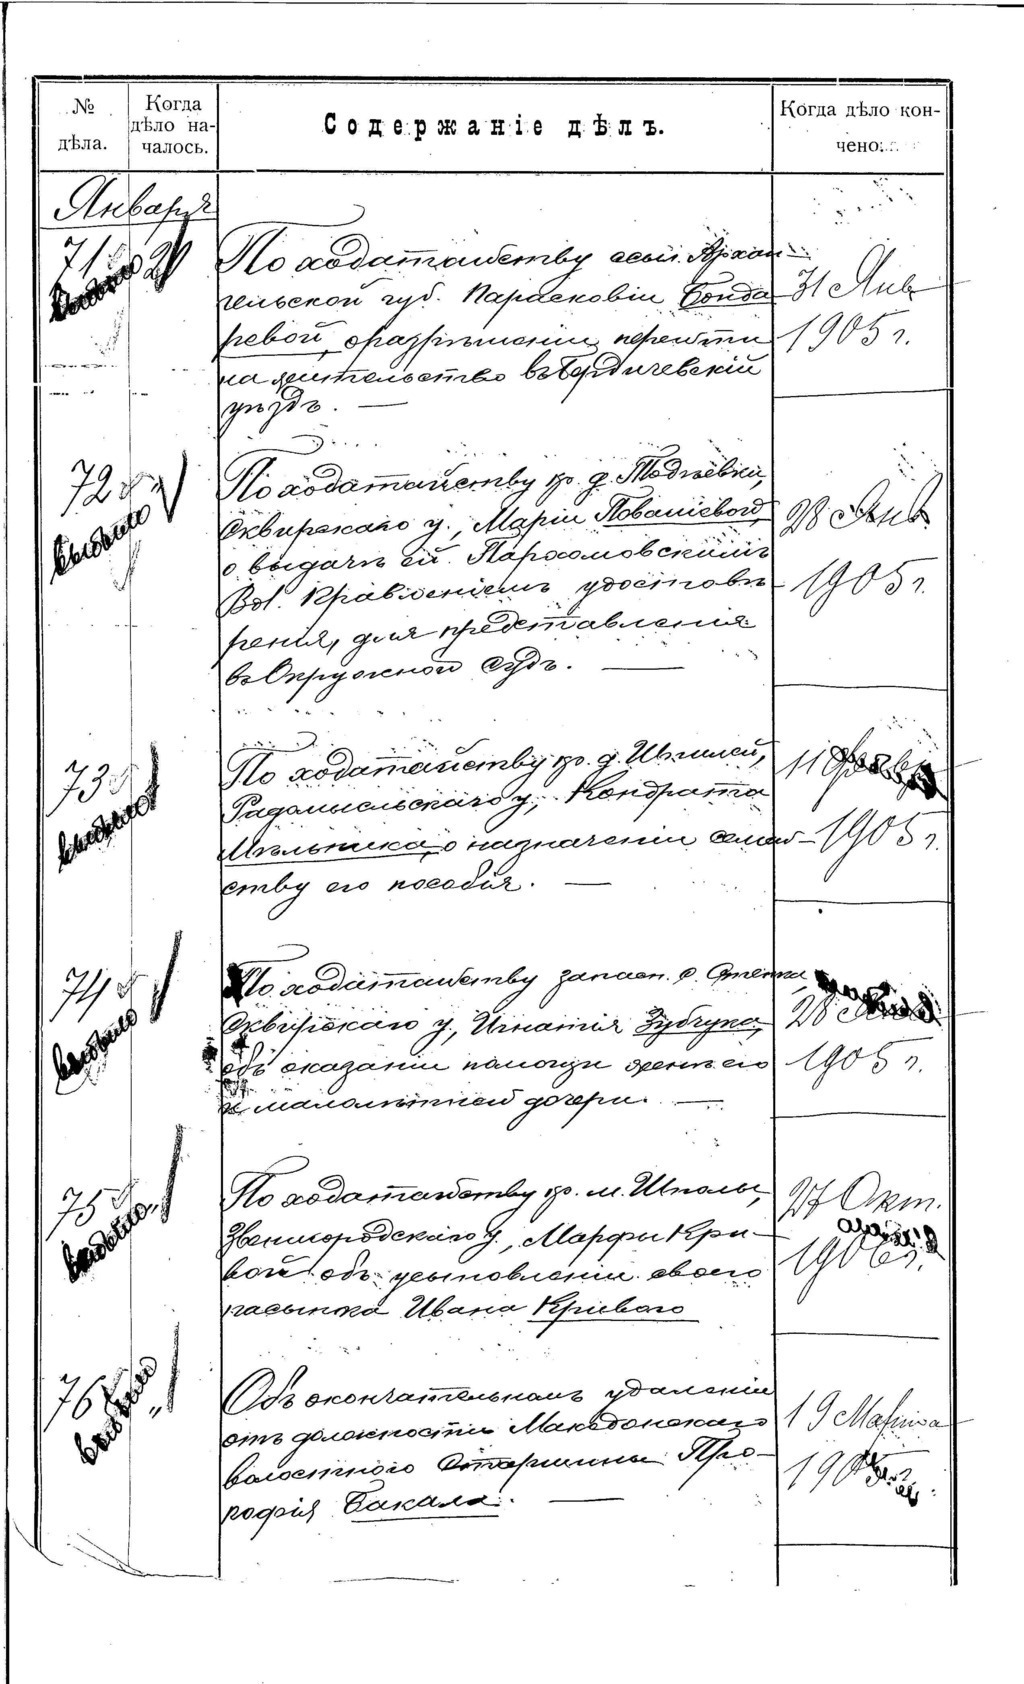 № дѣла.
Когда дѣло на-
чалось.
Содержаніе дѣлъ.
Когда дѣло кон-
чено.
Января
71
По ходатайству ссыл. Архан-
гельской губ. Парасковіи Бонда-
ревой, о разрѣшеніи перейти
на жительство въ Бердичевскій
уѣздъ. —
31 Янв
1905 г.
72
выбыло
По ходатайству кр. д.
Сквирскаго у., Маріи
о выдачѣ ей Пархомовскимъ
Вол. Правленіемъ удостовѣ-
ренія, для представленія
въ Окружной Судъ. —
28 Янв
1905 г.
73
выбыло
По ходатайству кр. д.
Радомысльскаго у., Кондрата
Мѣльника, о назначеніи семей-
ству его пособія. —
11
1905 г.
74
выбыло
По ходатайству запасн. с.
Сквирскаго у., Игнатія Зубчука,
объ оказаніи помощи женѣ его
и малолѣтней дочери. —
28
1905 г.
75
выбыло
По ходатайству кр. м. Шполы,
Звенигородскаго у., Марфы Кри-
вой объ усыновленіи своего
пасынка Ивана Криваго
27 Окт.
1906 г.
76
выбыло
Объ окончательномъ удаленіи
отъ должности Македонскаго
волостного Старшины Про-
кофія Бакала. —
19 Марта
1905 г.